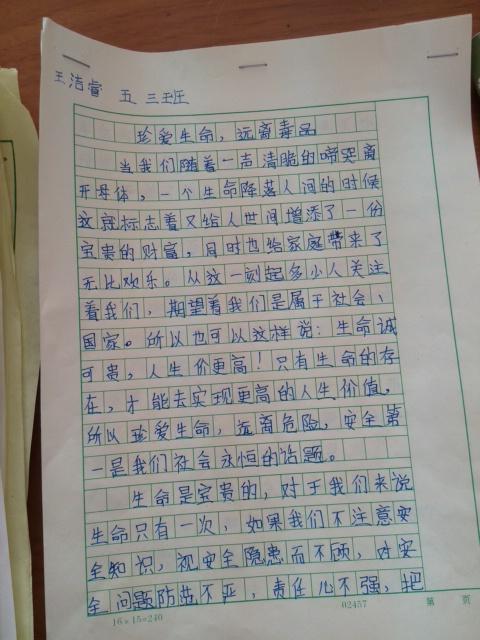 王洁睿 五 三班
珍爱生命，远离毒品
当我们随着一声清脆的啼哭离
开母体，一个生命降落人间的时候
这就标志着又给人世间增添了一份
宝贵的财富，同时也给家庭带来了
无比欢乐。从这一刻起多少人关注
着我们，期望着我们是属于社会、
国家。所以也可以这样说：生命诚
可贵，人生价更高！只有生命的存
在，才能去实现更高的人生价值。
所以珍爱生命，远离危险，安全第
一是我们社会永恒的话题。
生命是宝贵的，对于我们来说
生命只有一次，如果我们不注意安
全知识，视安全隐患而不顾，对安
全问题防范不严，责任心不强，把
16×15=240 02457 第 页